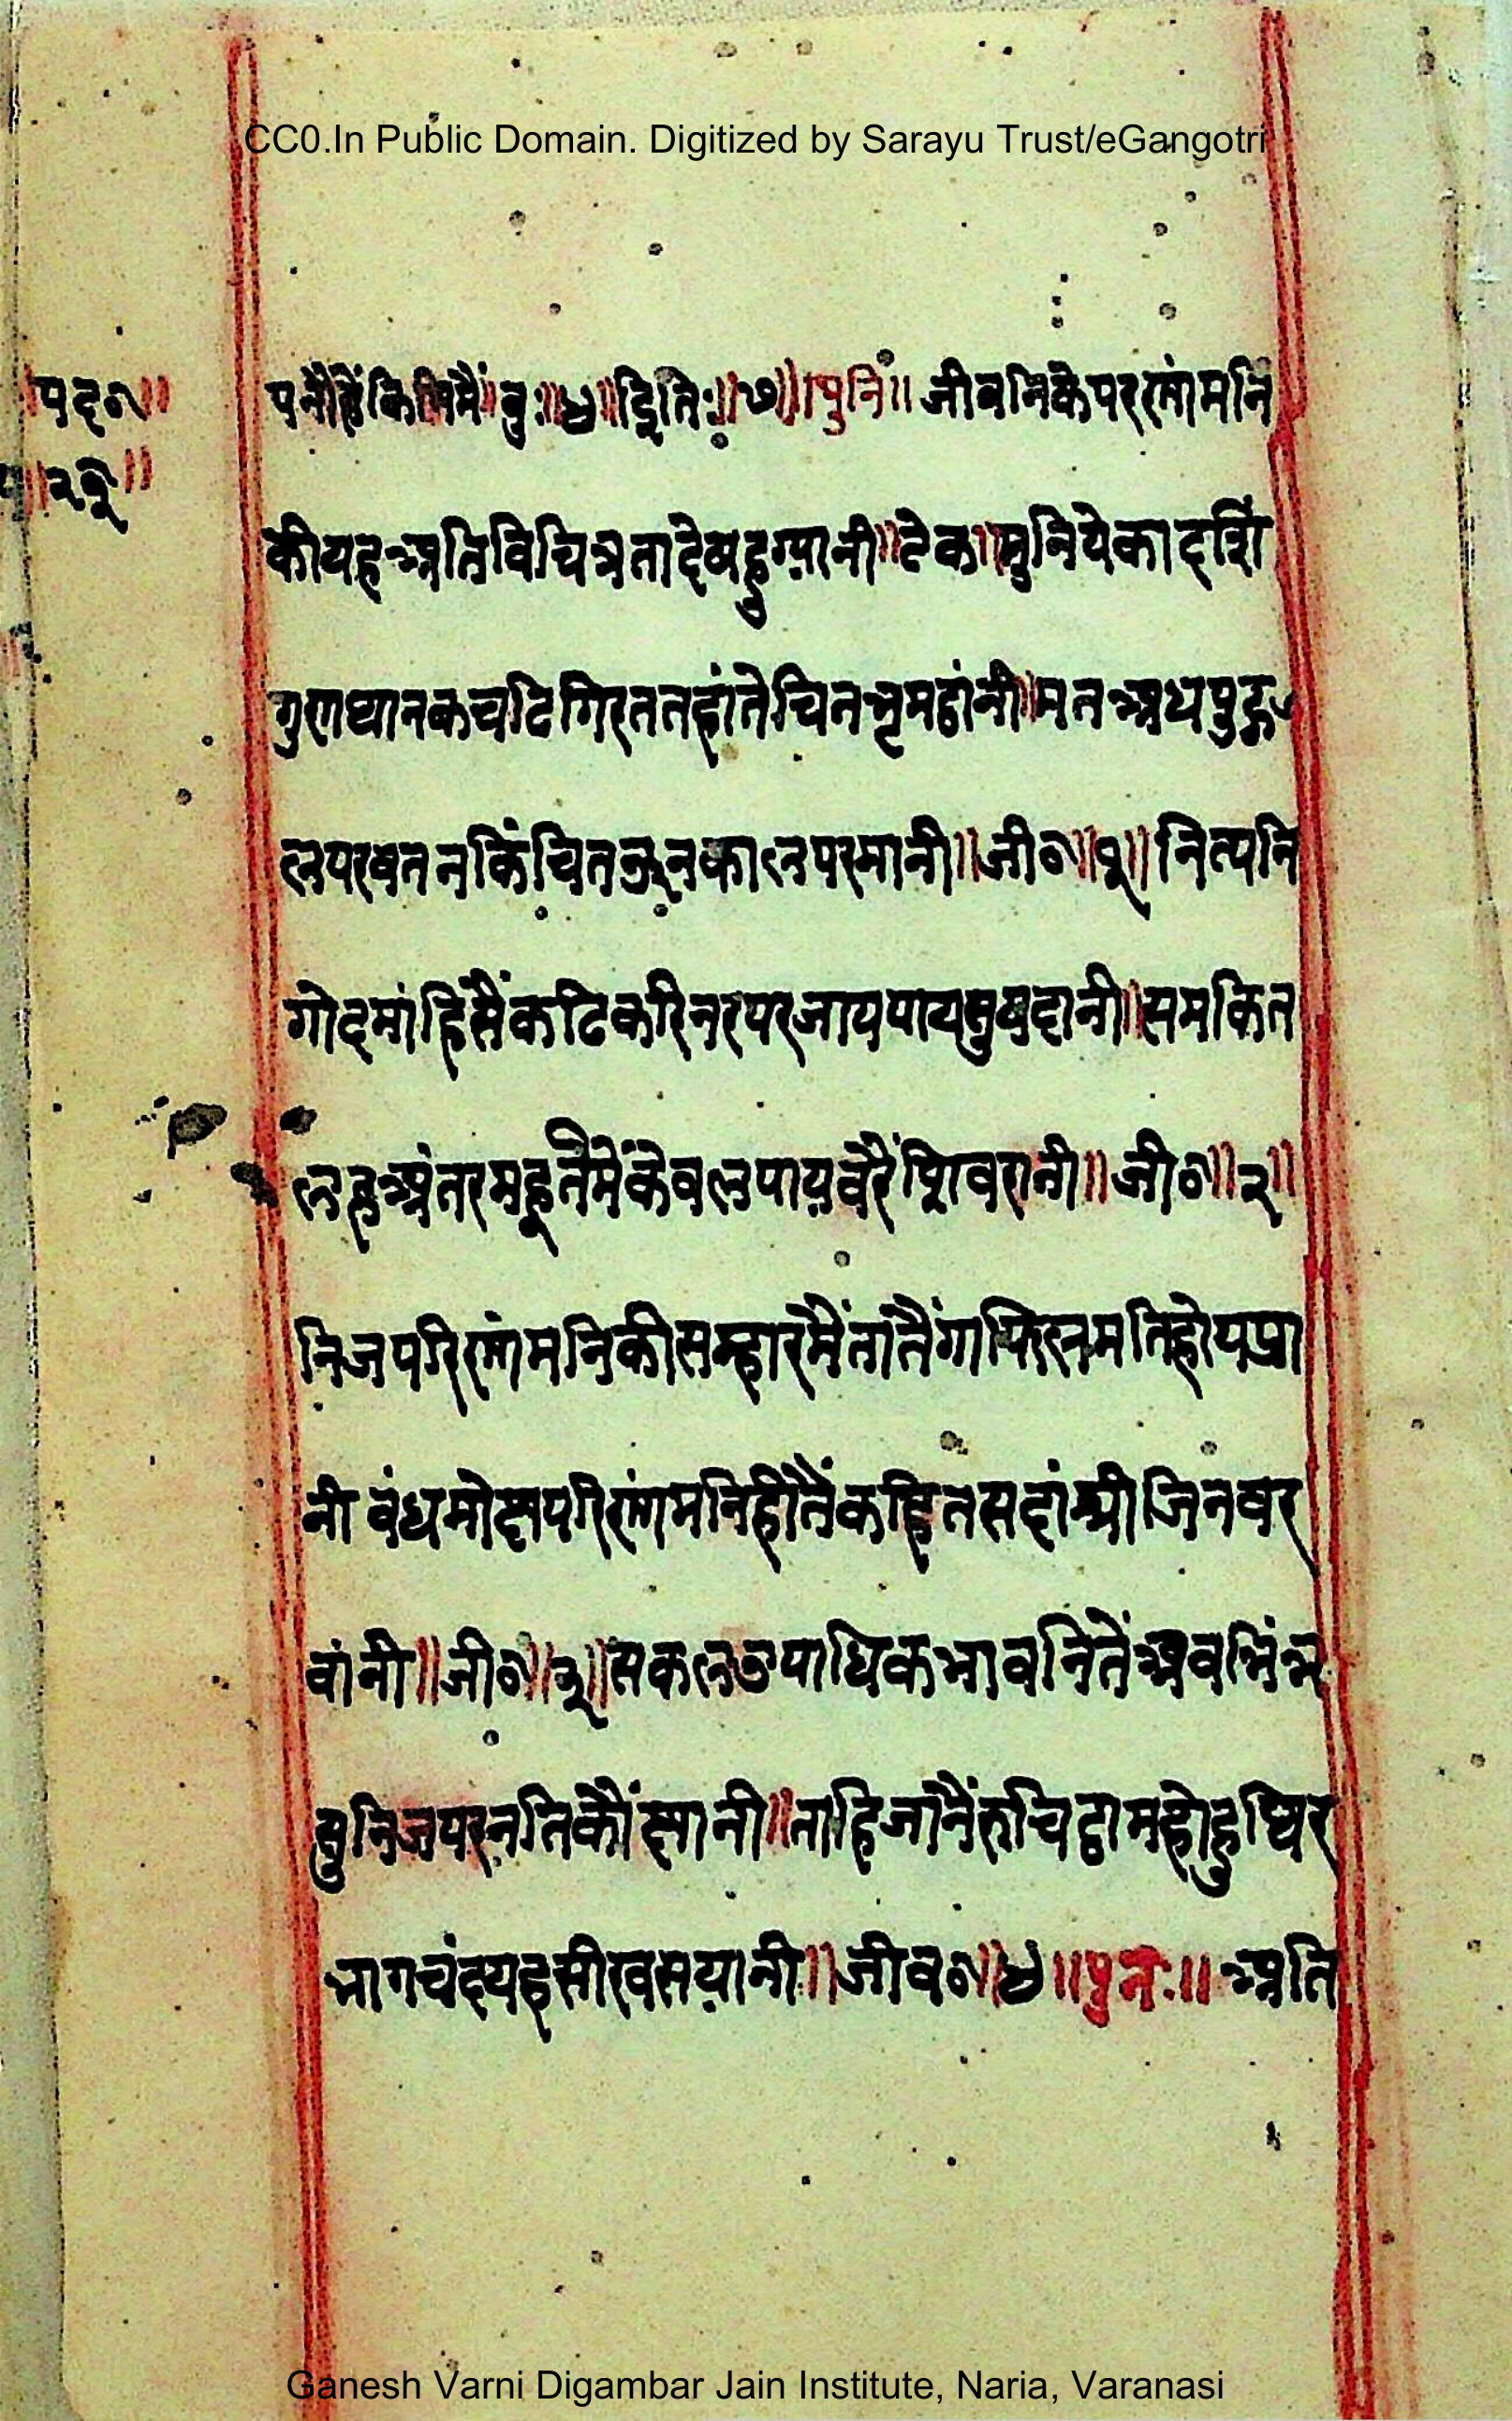 CC0.In Public Domain. Digitized by Sarayu Trust/eGangotri
पद०॥
॥२१॥
पनौ कि मैं॥ बु॰॥४॥ इति॰॥७॥ पुनि॥ जीवनिके परणांमनि
की यह अति विचित्रता देषहु ग्यानी॥टेक॥ मुनि येकादशि
गुणथानक चढि गिरत तहां ते चित भृम ठांनी॥ मन अध पुद्ग
ल परवतन किंचित ऊन काल परमानी॥जी०॥१॥ नित्य नि
गोद मांहि सैं कढि करि नर परजाय पाय सुषदानी॥ समकित
लह अंतर महूर्तमें केवल पाय वरैं शिवरानी॥जी०॥२॥
निज परिणांमनि की सम्हार मैं तांतैं गाफिल मति होय प्रा
नी बंध मोक्ष परिणांमनि ही तैं कहित सदां श्री जिनवर
वांनी॥जी०॥३॥ सकल उपाधिक भावनितें अव भिंन्न
सु निज परनति कौं छानी॥ ताहि जांनैं रुचि ठाम होहु थिर
भागचंद यह सीख सयानी॥ जीव०॥४॥ पुनः॥ अति
Ganesh Varni Digambar Jain Institute, Naria, Varanasi